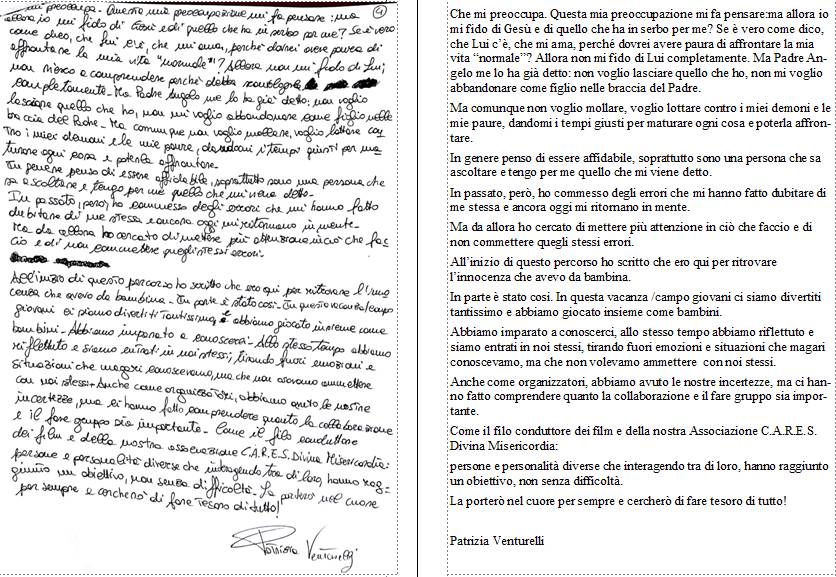 mi preoccupa. Questa mia preoccupazione mi fa pensare: ma
allora io mi fido di Gesù e di quello che ha in serbo per me? Se è vero
come dico, che Lui c'è, che mi ama, perché dovrei avere paura di
affrontare la mia vita "normale"? Allora non mi fido di Lui,
non riesco a comprendere perché
completamente - Ma Padre Angelo me lo ha già detto: non voglio
lasciare quello che ho, non mi voglio abbandonare come figlio nelle
braccia del Padre - Ma comunque non voglio mollare, voglio lottare con
tro i miei demoni e le mie paure, dandomi i tempi giusti per ma
turare ogni cosa e poterla affrontare.
In genere penso di essere affidabile, soprattutto sono una persona che
sa ascoltare e tengo per me quello che mi viene detto -
In passato, però, ho commesso degli errori che mi hanno fatto
dubitare di me stessa e ancora oggi mi ritornano in mente -
Ma da allora ho cercato di mettere più attenzione in ciò che fac
cio e di non commettere quegli stessi errori.
All'inizio di questo percorso ho scritto che ero qui per ritrovare l'inno
cenza che avevo da bambina - In parte è stato così - In questa vacanza/campo
giovani ci siamo divertiti tantissimo, e abbiamo giocato insieme come
bambini - Abbiamo imparato a conoscerci - Allo stesso tempo abbiamo
riflettuto e siamo entrati in noi stessi, tirando fuori emozioni e
situazioni che magari conoscevamo, ma che non volevamo ammettere
con noi stessi - Anche come organizzatori, abbiamo avuto le nostre
incertezze, ma ci hanno fatto comprendere quanto la collaborazione
e il fare gruppo sia importante - Come il filo conduttore
dei film e della nostra associazione C.A.R.E.S. Divina Misericordia:
persone e personalità diverse che interagendo tra di loro, hanno rag-
giunto un obiettivo, non senza difficoltà - La porterò nel cuore
per sempre e cercherò di fare tesoro di tutto!
Patrizia Venturelli
Che mi preoccupa. Questa mia preoccupazione mi fa pensare:ma allora io
mi fido di Gesù e di quello che ha in serbo per me? Se è vero come dico,
che Lui c'è, che mi ama, perché dovrei avere paura di affrontare la mia
vita "normale"? Allora non mi fido di Lui completamente. Ma Padre An-
gelo me lo ha già detto: non voglio lasciare quello che ho, non mi voglio
abbandonare come figlio nelle braccia del Padre.
Ma comunque non voglio mollare, voglio lottare contro i miei demoni e le
mie paure, dandomi i tempi giusti per maturare ogni cosa e poterla affron-
tare.
In genere penso di essere affidabile, soprattutto sono una persona che sa
ascoltare e tengo per me quello che mi viene detto.
In passato, però, ho commesso degli errori che mi hanno fatto dubitare di
me stessa e ancora oggi mi ritornano in mente.
Ma da allora ho cercato di mettere più attenzione in ciò che faccio e di
non commettere quegli stessi errori.
All'inizio di questo percorso ho scritto che ero qui per ritrovare
l'innocenza che avevo da bambina.
In parte è stato cosi. In questa vacanza /campo giovani ci siamo divertiti
tantissimo e abbiamo giocato insieme come bambini.
Abbiamo imparato a conoscerci, allo stesso tempo abbiamo riflettuto e
siamo entrati in noi stessi, tirando fuori emozioni e situazioni che magari
conoscevamo, ma che non volevamo ammettere con noi stessi.
Anche come organizzatori, abbiamo avuto le nostre incertezze, ma ci han-
no fatto comprendere quanto la collaborazione e il fare gruppo sia impor-
tante.
Come il filo conduttore dei film e della nostra Associazione C.A.R.E.S.
Divina Misericordia:
persone e personalità diverse che interagendo tra di loro, hanno raggiunto
un obiettivo, non senza difficoltà.
La porterò nel cuore per sempre e cercherò di fare tesoro di tutto!
Patrizia Venturelli